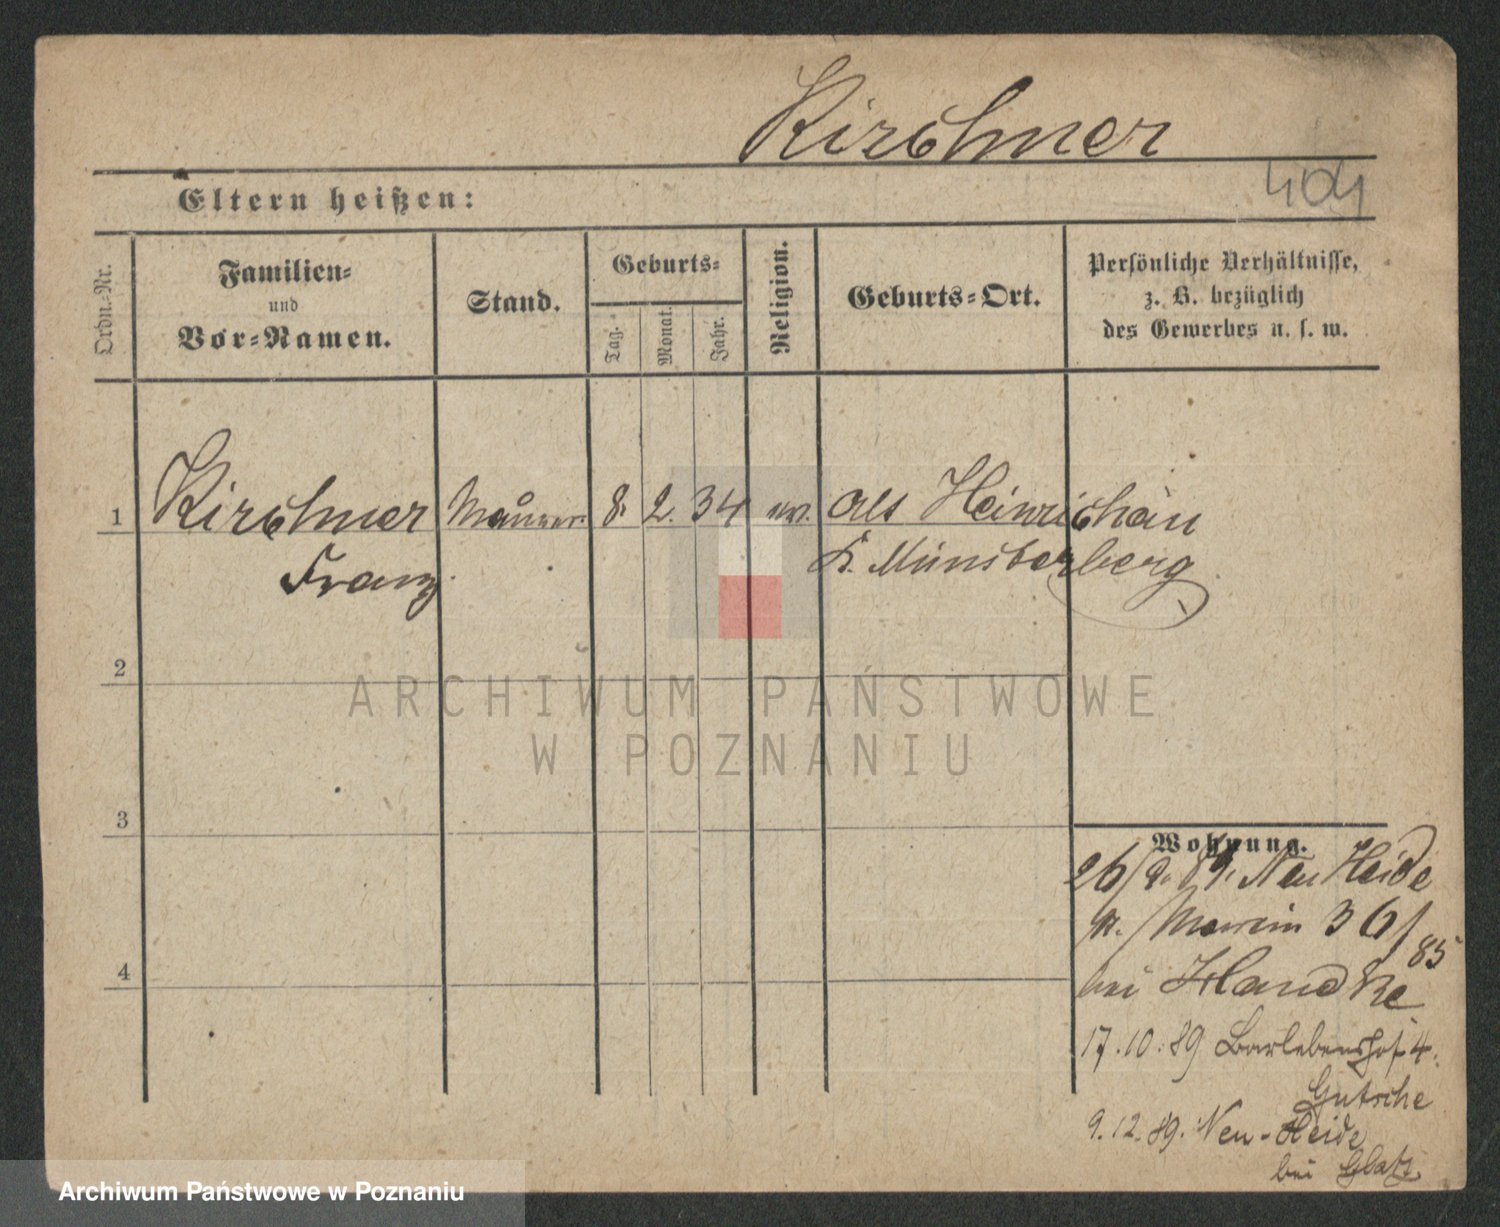 Kirchner
404
Eltern heißen:
Ordn.-Nr.
Familien-
und
Vor-Namen.
Stand.
Geburts-
Tag.
Monat.
Jahr.
Religion.
Geburts-Ort.
Persönliche Verhältnisse,
z. B. bezüglich
des Gewerbes u. s. w.
1 Kirchner Maurer. 8. 2. 34 ev. Alt Heinrichau
Franz. K. Münsterberg
2
ARCHIWUM PAŃSTWOWE
W POZNANIU
3
4
Wohnung.
26/9. 89. Neu Heide
36/85
bei Handke
17.10.89 Barlebenshof 4.
Gutsche
9.12.89. Neu-Heide
bei Glatz.
Archiwum Państwowe w Poznaniu